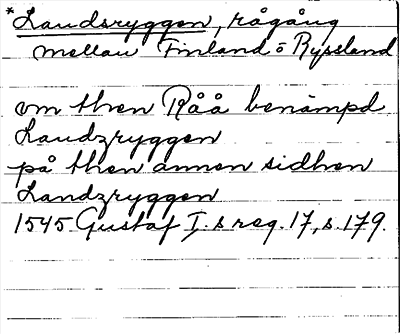 *Landsryggen, rågång
mellan Finland o Ryssland
vm then Råå benämpd
Landzryggen
på then annen sidhen
Landzryggen
1545 Gustaf I.s reg. 17, s. 179.